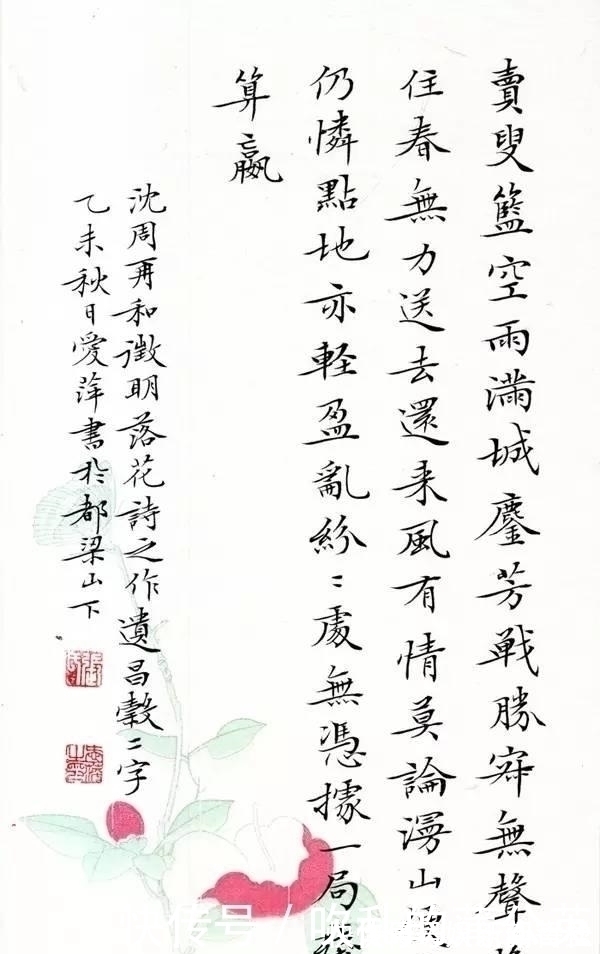 賣叟籃空雨滿城鏖芳戰勝寂無聲
住春無力送去還来風有情莫論漫山
仍憐點地亦軽盈亂紛〻處無憑據一局
算嬴
沈周再和徵明落花詩之作遺昌穀二字
乙未秋日愛萍書於都梁山下